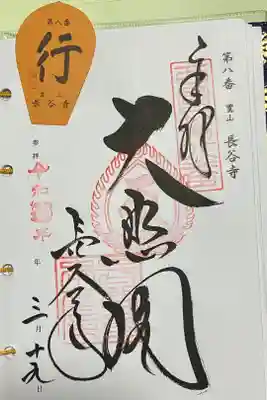 第八番
行
長谷寺
第八番 豊山 長谷寺
奉拝
大悲閣
長谷寺
参拝 令和 年 年 三月 十九日